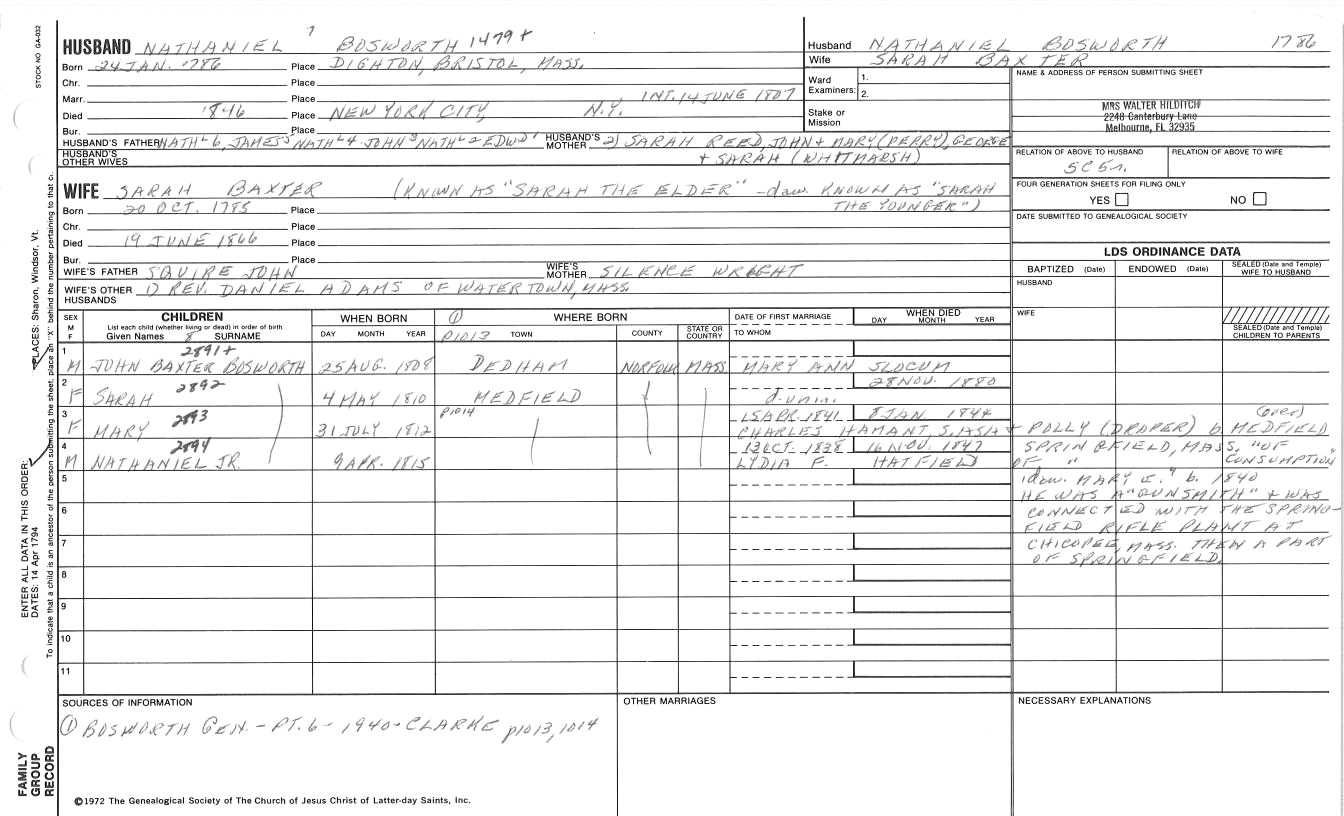 STOCK NO GA-032
HUSBAND NATHANIEL 7 BOSWORTH 1479+
Born 24 JAN. 1786 Place DIGHTON, BRISTOL, MASS.
Chr. Place
Marr. Place INT. 14 JUNE 1807
Died 1846 Place NEW YORK CITY, N.Y.
Bur. Place
HUSBAND'S FATHER NATHL 6, JAMES 5 NATHL 4 JOHN 3 NATHL 2 EDWD 1 HUSBAND'S MOTHER 2) SARAH REED, JOHN + MARY (PERRY), GEORGE
HUSBAND'S OTHER WIVES + SARAH (WHITMARSH)
WIFE SARAH BAXTER (KNOWN AS "SARAH THE ELDER" - daw. KNOWN AS "SARAH
Born 20 OCT. 1785 Place THE YOUNGER")
Chr. Place
Died 19 JUNE 1866 Place
Bur. Place
WIFE'S FATHER SQUIRE JOHN WIFE'S MOTHER SILENCE WRIGHT
WIFE'S OTHER HUSBANDS 1) REV. DANIEL ADAMS OF WATERTOWN, MASS.
Husband NATHANIEL BOSWORTH 1786
Wife SARAH BAXTER
Ward Examiners: 1.
2.
Stake or Mission
NAME & ADDRESS OF PERSON SUBMITTING SHEET
MRS WALTER HILDITCH
2248 Canterbury Lane
Melbourne, FL 32935
RELATION OF ABOVE TO HUSBAND RELATION OF ABOVE TO WIFE
5C5r.
FOUR GENERATION SHEETS FOR FILING ONLY
YES NO
DATE SUBMITTED TO GENEALOGICAL SOCIETY
LDS ORDINANCE DATA
BAPTIZED (Date) ENDOWED (Date) SEALED (Date and Temple) WIFE TO HUSBAND
HUSBAND
WIFE
SEALED (Date and Temple) CHILDREN TO PARENTS
SEX M F
CHILDREN
List each child (whether living or dead) in order of birth
Given Names 8 SURNAME
WHEN BORN
DAY MONTH YEAR
① WHERE BORN
p1013 TOWN COUNTY STATE OR COUNTRY
DATE OF FIRST MARRIAGE
TO WHOM
WHEN DIED
DAY MONTH YEAR
2891+
1 M JOHN BAXTER BOSWORTH 25 AUG. 1808 DEDHAM NORFOLK MASS. MARY ANN SLOCUM
2892 28 NOV. 1880
2 F SARAH 4 MAY 1810 MEDFIELD d. unm.
2893 p1014 15 APR. 1841 8 JAN. 1844 (over)
3 F MARY 31 JULY 1812 CHARLES HAMANT, S. ASA + POLLY (DROPER) b. MEDFIELD
2894 13 OCT. 1838 16 NOV. 1847 SPRINGFIELD, MASS, "OF
4 M NATHANIEL JR. 9 APR. 1815 LYDIA F. HATFIELD OF " CONSUMPTION"
5 daw. MARY E." b. 1840
HE WAS A "GUNSMITH" + WAS
6 CONNECTED WITH THE SPRING-
FIELD RIFLE PLANT AT
7 CHICOPEE, MASS. THEN A PART
OF SPRINGFIELD.
8
9
10
11
SOURCES OF INFORMATION
① BOSWORTH GEN. - PT. 6 - 1940 - CLARKE p1013, 1014
OTHER MARRIAGES
NECESSARY EXPLANATIONS
©1972 The Genealogical Society of The Church of Jesus Christ of Latter-day Saints, Inc.
FAMILY GROUP RECORD
ENTER ALL DATA IN THIS ORDER:
DATES: 14 Apr 1794
PLACES: Sharon, Windsor, Vt.
To indicate that a child is an ancestor of the person submitting the sheet, place an "X" behind the number pertaining to that c.